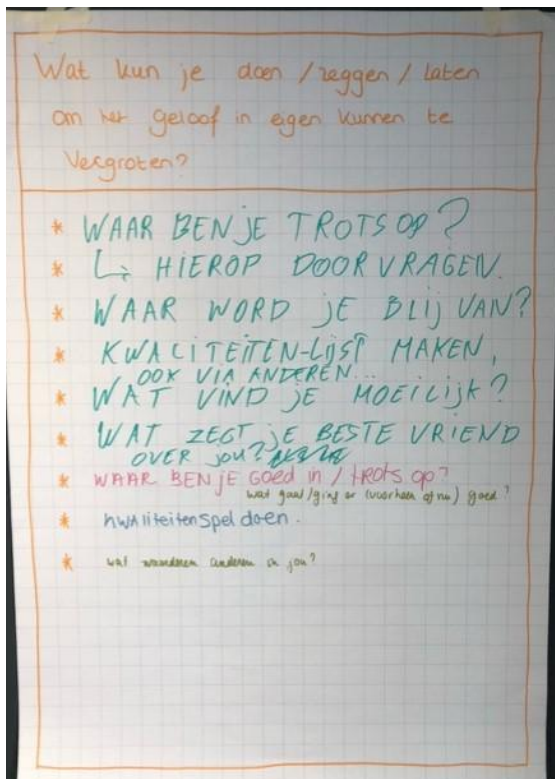 Wat kun je doen / zeggen / laten
om het geloof in eigen kunnen te
vergroten?
* WAAR BEN JE TROTS OP?
* ↳ HIEROP DOORVRAGEN.
* WAAR WORD JE BLIJ VAN?
* KWALITEITEN-LIJST MAKEN,
OOK VIA ANDEREN...
* WAT VIND JE MOEILIJK?
* WAT ZEGT JE BESTE VRIEND
OVER JOU?
* WAAR BEN JE GOED IN / TROTS OP?
wat gaat/ging er (voorheen of nu) goed?
* kwaliteitenspel doen.
* wat waarderen anderen in jou?